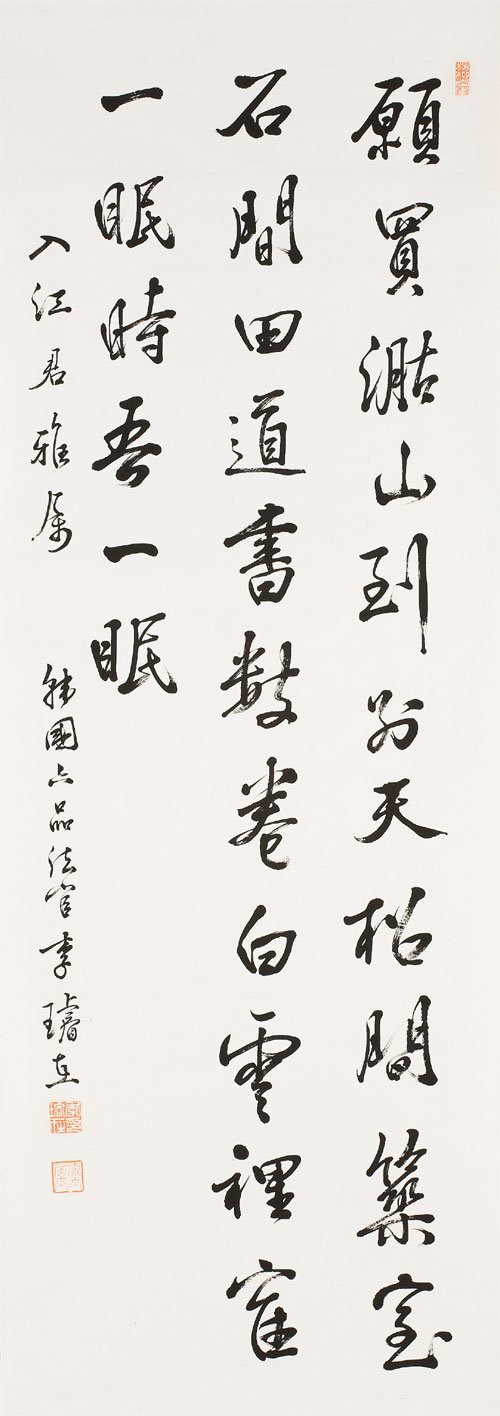 願買山到別天松間築室
石間田道書數卷白雲裡寉
一眠時吾一眠
入江君雅属
韓國六品法官李璿在